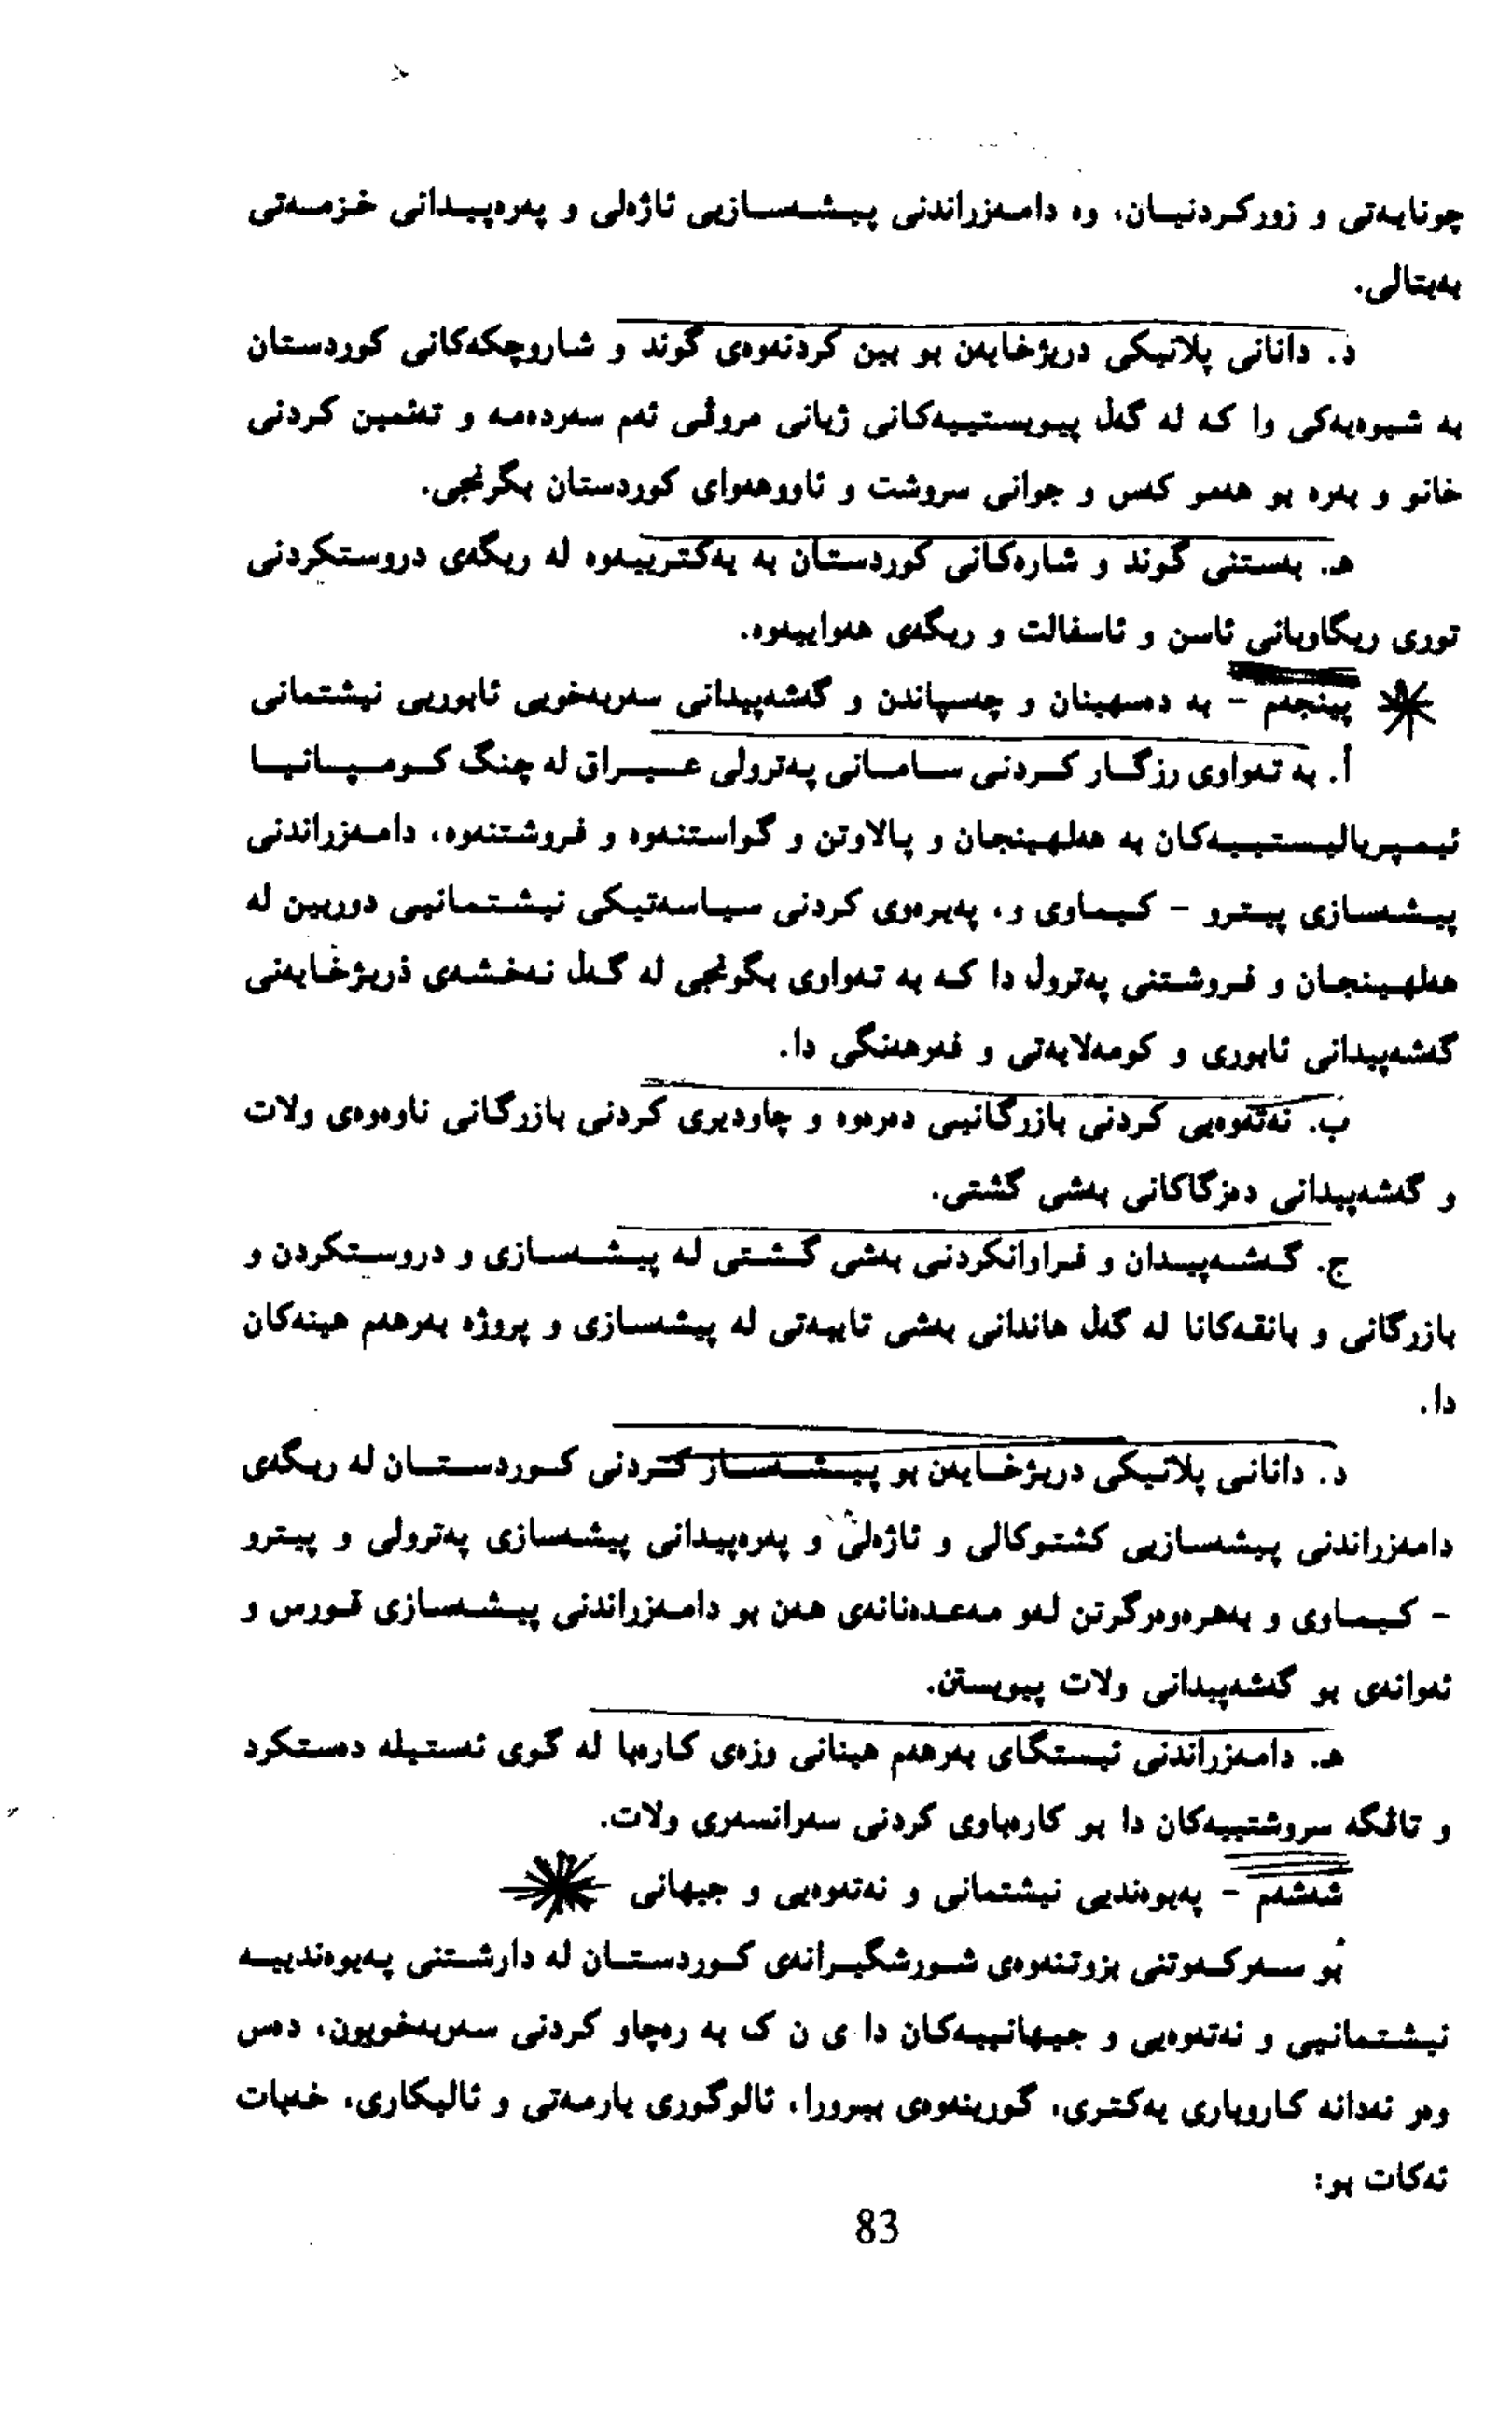 چونایەتی و زورکردنیان، وە دامەزراندنی پیشەسازیی ئاژەلی و پەرەپیدانی خزمەتی
بەیتالی.
د. دانانی پلانیکی دریژخایەن بو بین کردنەوەی گوند و شاروچکەکانی کوردستان
بە شیوەیەکی وا کە لە گەل پیویستییەکانی ژیانی مروڤی ئەم سەردەمە و تەئمین کردنی
خانو و بەرە بو هەمو کەس و جوانی سروشت و ئاووهەوای کوردستان بگرنجی.
هـ. بەستنی گوند و شارەکانی کوردستان بە یەکترییەوە لە ریگەی دروستکردنی
توری ریگاوبانی ئاسن و ئاسفالت و ریگەی هەواییەوە.
پینجەم – بە دەسهینان و چەسپاندن و گەشەپیدانی سەربەخویی ئابوریی نیشتمانی
أ. بە تەواوی رزگار کردنی سامانی پەترولی عیراق لە چنگ کومپانیا
ئیمپریالیستییەکان بە هەلهینجان و پالاوتن و گواستنەوە و فروشتنەوە، دامەزراندنی
پیشەسازی پیترو – کیماوی و، پەیرەوی کردنی سیاسەتیکی نیشتمانیی دوربین لە
هەلهینجان و فروشتنی پەترول دا کە بە تەواوی بگونجی لە گەل نەخشەی ذریژخایەنی
گەشەپیدانی ئابوری و کومەلایەتی و فەرهەنگی دا.
ب. نەتەوەیی کردنی بازرگانیی دەرەوە و چاودیری کردنی بازرگانی ناوەوەی ولات
و گەشەپیدانی دەزگاکانی بەشی گشتی.
ج. گەشەپیدان و فراوانکردنی بەشی گشتی لە پیشەسازی و دروستکردن و
بازرگانی و بانقەکانا لە گەل هاندانی بەشی تایبەتی لە پیشەسازی و پروژە بەرهەم هینەکان
دا.
د. دانانی پلانیکی دریژخایەن بو پیشەساز کردنی کوردستان لە ریگەی
دامەزراندنی پیشەسازیی کشتوکالی و ئاژەلی و پەرەپیدانی پیشەسازی پەترولی و پیترو
– کیماوی و بەهرەوەرگرتن لەو مەعدەنانەی هەن بو دامەزراندنی پیشەسازی قورس و
ئەوانەی بو گەشەپیدانی ولات پیویستن.
هـ. دامەزراندنی ئیستگای بەرهەم هینانی وزەی کارەبا لە گوی ئەستیلە دەستکرد
و تاڤگە سروشتییەکان دا بو کارەباوی کردنی سەرانسەری ولات.
شەشەم – پەیوەندیی نیشتمانی و نەتەوەیی و جیهانی
بو سەرکەوتنی بزوتنەوەی شورشگیرانەی کوردستان لە دارشتنی پەیوەندییە
نیشتمانیی و نەتەوەیی و جیهانییەکان دا ی ن ک بە رەچاو کردنی سەربەخویون، دەس
وەر نەدانە کاروباری یەکتری، گورینەوەی بیرورا، ئالوگوری یارمەتی و ئالیکاری، خەبات
ئەکات بو:
83